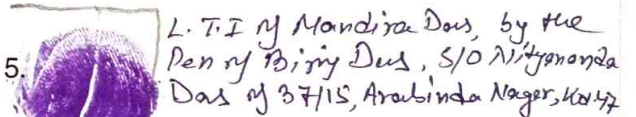 L.T.I of Mandira Das, by the
5. Pen of Biry Das, S/O Nityananda
Das of 37/15, Arabinda Nagar, Kol 47